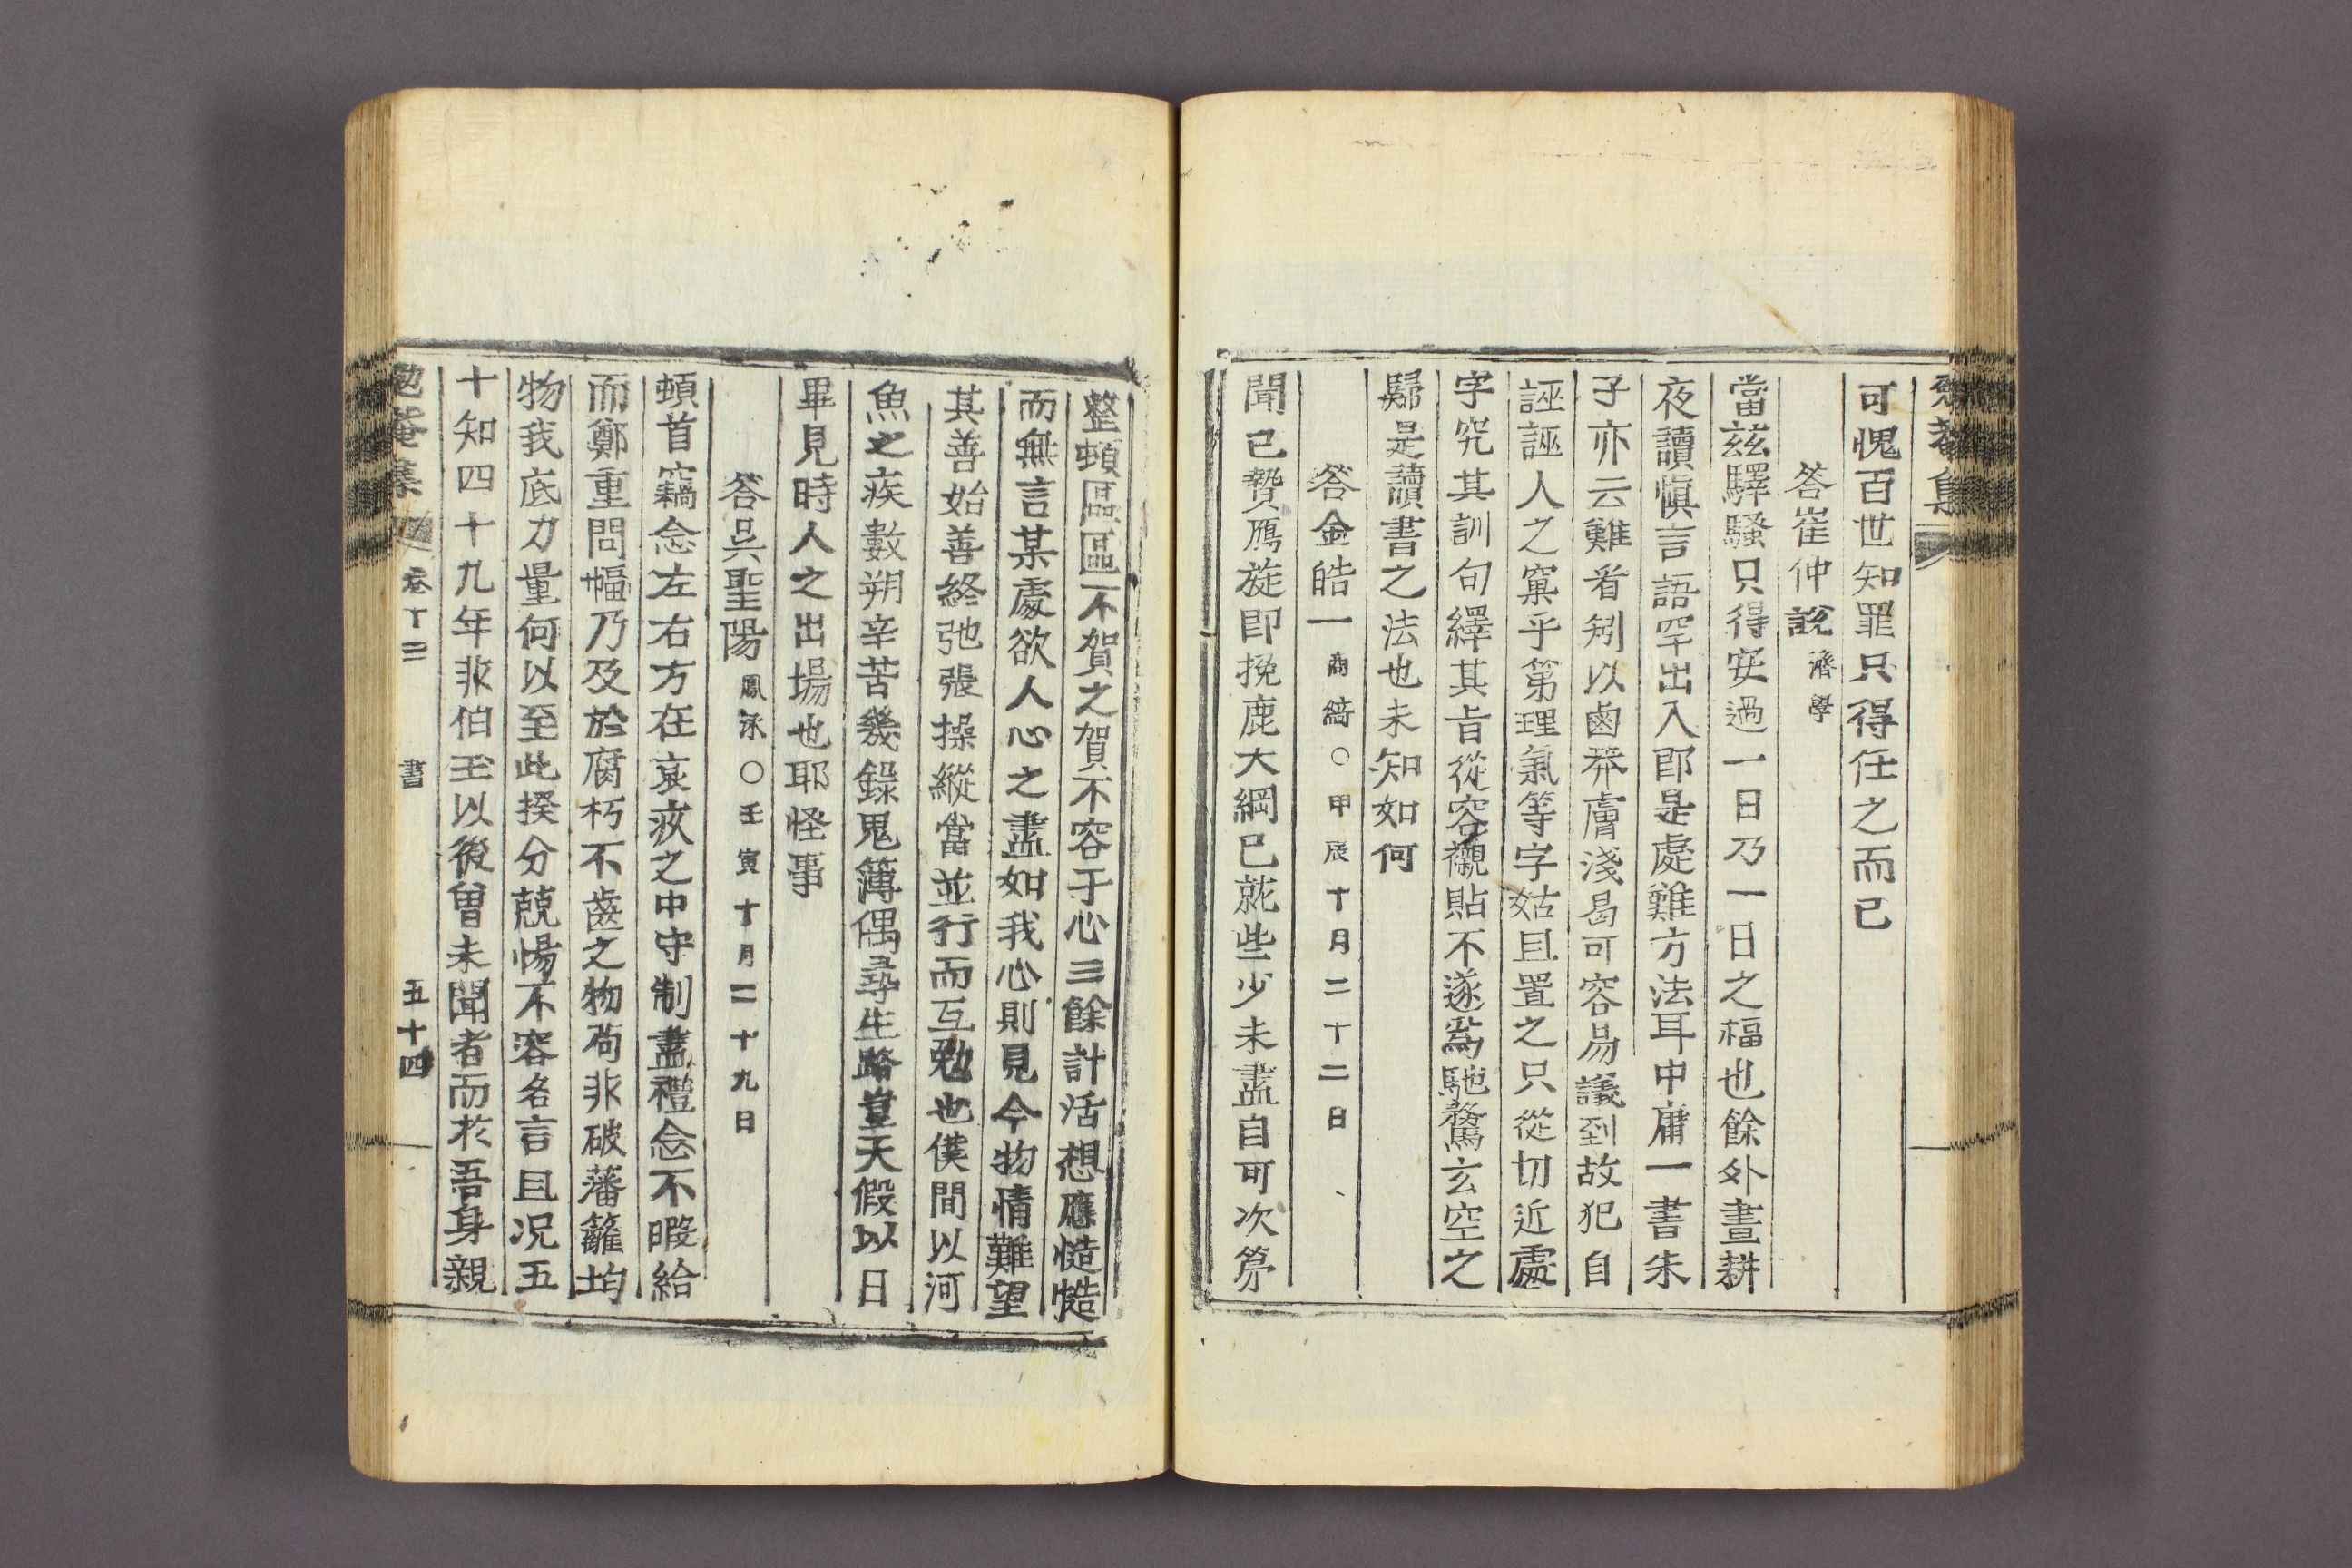 可愧百世知罪只得任之而已
答崔仲說 濟學
當玆驛騷只得安過一日乃一日之福也餘外晝耕
夜讀愼言語罕出入卽是處難方法耳中庸一書朱
子亦云難看矧以鹵莽膚淺曷可容易議到故犯自
誣誣人之窠乎第理氣等字姑且置之只從切近處
字究其訓句繹其旨從容襯貼不遂爲馳騖玄空之
歸是讀書之法也未知如何
答金皓一 商綺○甲辰十月二十二日
聞已贄鴈旋卽挽鹿大綱已就些少未盡自可次第
整頓區區不賀之賀不容于心三餘計活想應慥慥
而無言某處欲人心之盡如我心則見今物情難望
其善始善終弛張操縱當並行而互勉也僕間以河
魚之疾數朔辛苦幾錄鬼簿偶尋生路豈天假以日
畢見時人之出場也耶怪事
答吳聖陽 鳳泳○壬寅十月二十九日
頓首竊念左右方在哀疚之中守制盡禮念不暇給
而鄭重問幅乃及於腐朽不齒之物苟非破藩籬均
物我底力量何以至此揆分兢惕不容名言且况五
十知四十九年非伯玉以後曾未聞者而於吾身親
勉菴集 卷十三 書 五十四